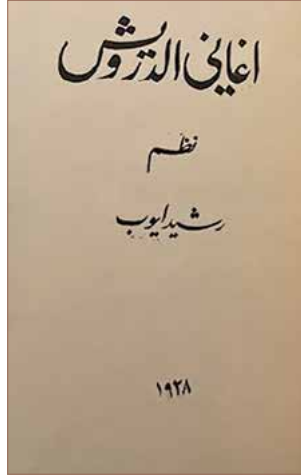 اغاني الدرويش
نظم
رشيد ايوب
١٩٢٨